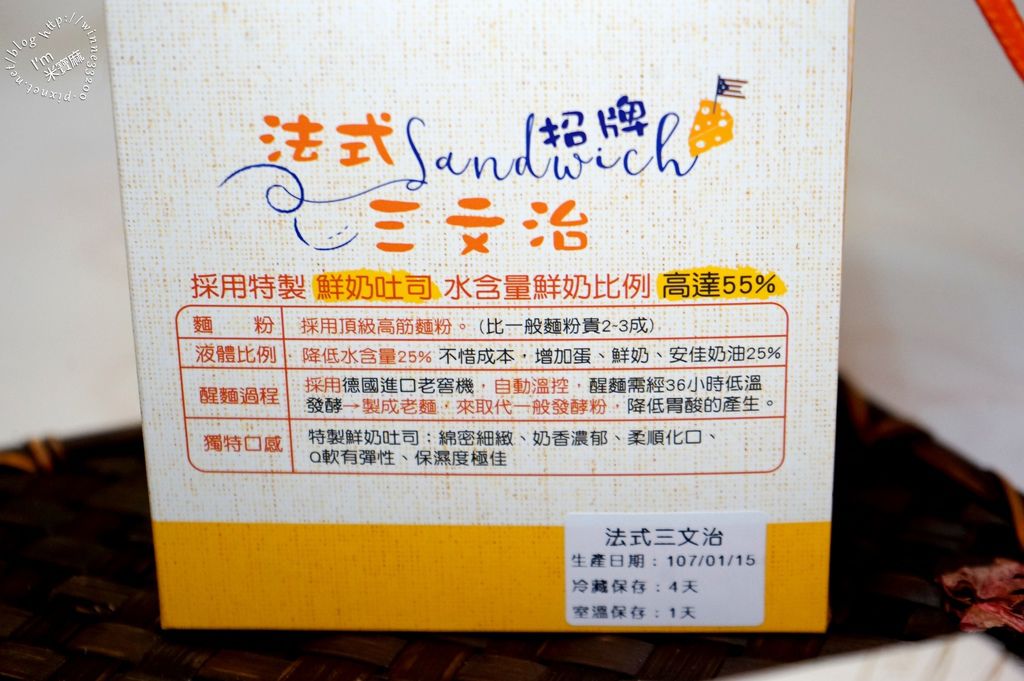 I'm
米寶麻
http://winne33200.pixnet.net/blog
法式 Sandwich 招牌
三文治
採用特製 鮮奶吐司 水含量鮮奶比例 高達55%
麵 粉 採用頂級高筋麵粉。(比一般麵粉貴2~3成)
液體比例 降低水含量25% 不惜成本，增加蛋、鮮奶、安佳奶油25%
醒麵過程 採用德國進口老窖機，自動溫控，醒麵需經36小時低溫
發酵→製成老麵，來取代一般發酵粉，降低胃酸的產生。
獨特口感 特製鮮奶吐司：綿密細緻、奶香濃郁、柔順化口、
Q軟有彈性、保濕度極佳
法式三文治
生產日期：107/01/15
冷藏保存：4天
室溫保存：1天